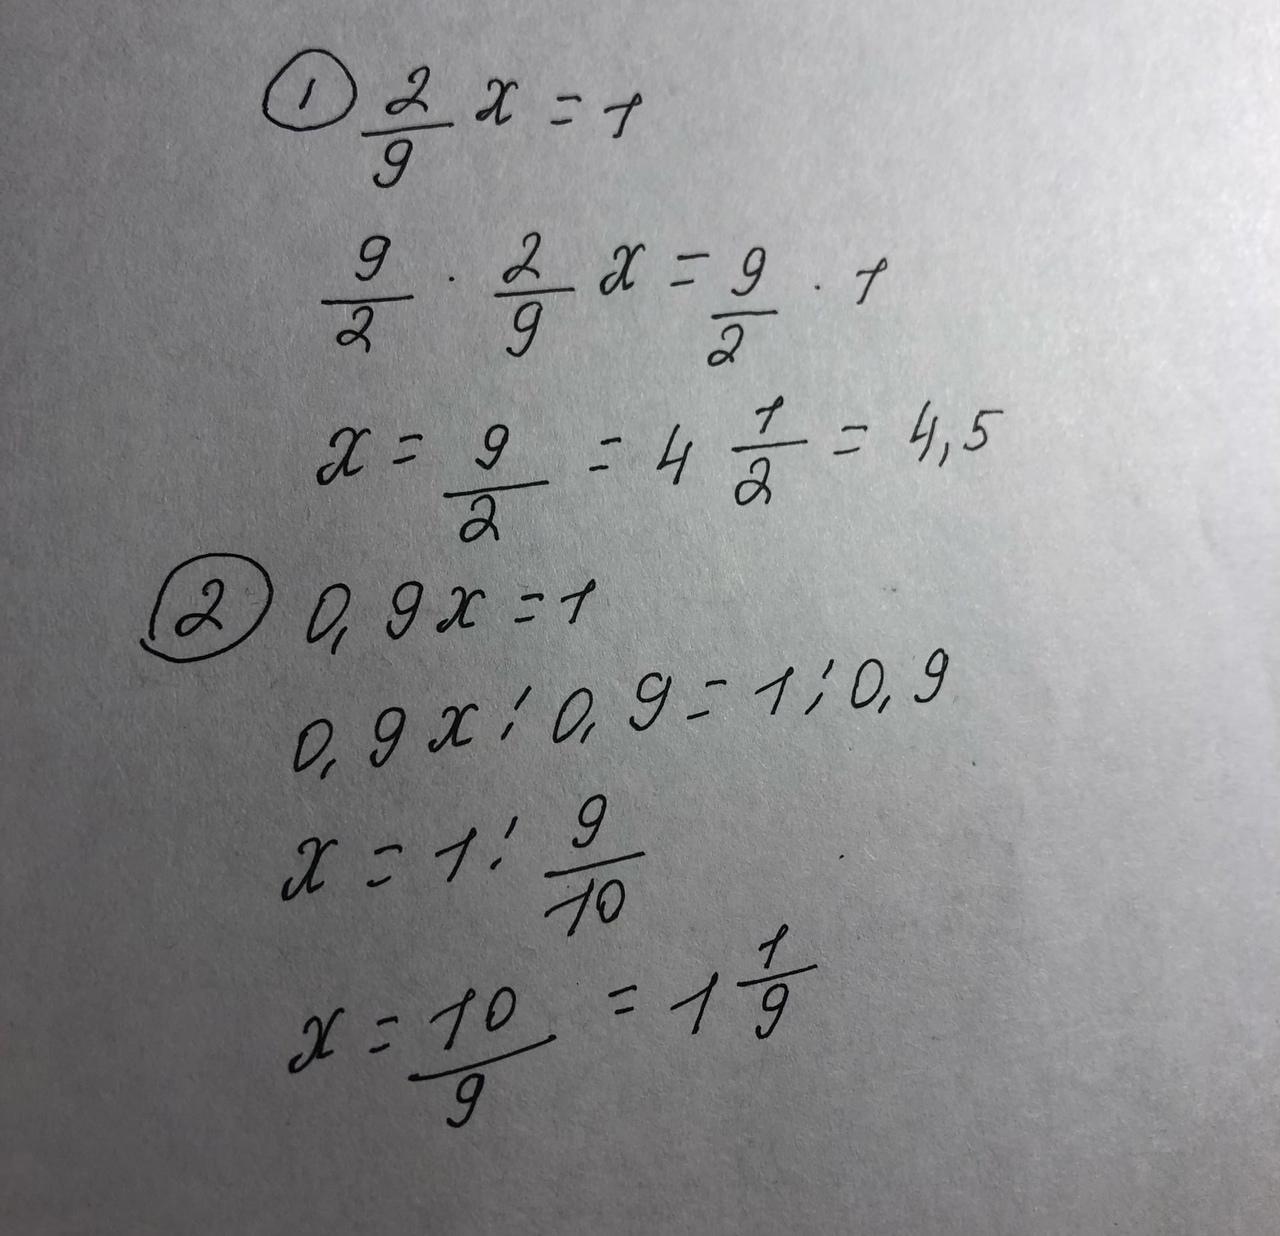 ① 2/9 x = 1
9/2 · 2/9 x = 9/2 · 1
x = 9/2 = 4 1/2 = 4,5
② 0,9x = 1
0,9x : 0,9 = 1 : 0,9
x = 1 : 9/10
x = 10/9 = 1 1/9